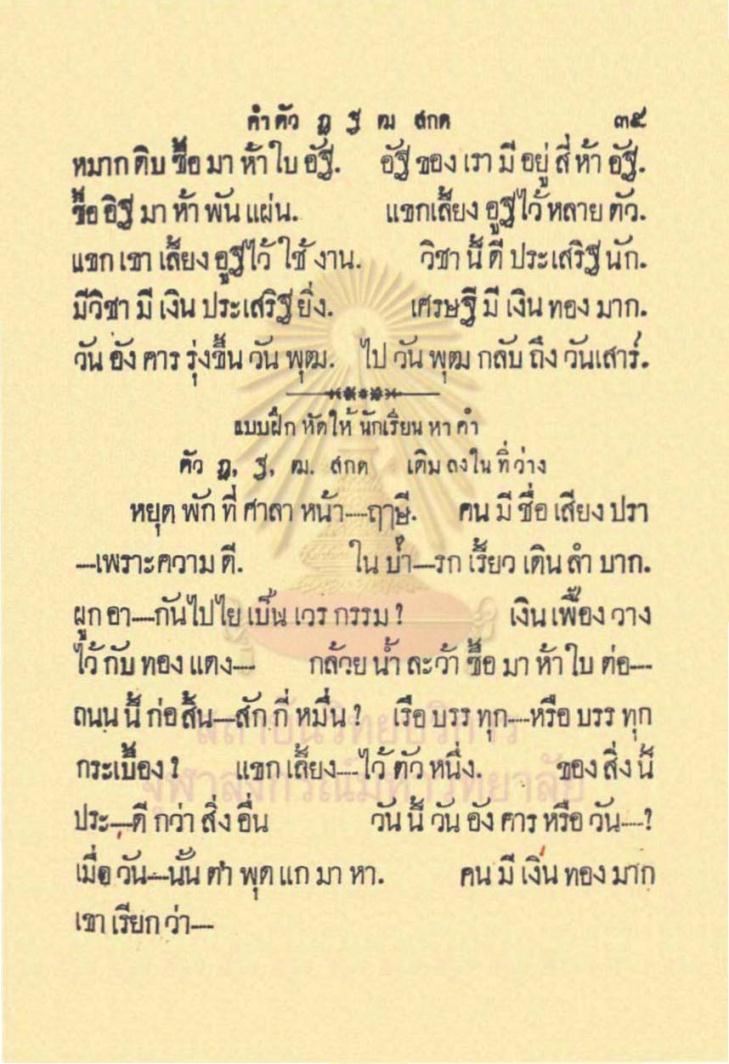 คำตัว ฏ ฐ ฒ สกด ๓๕
หมาก ดิบ ซื้อ มา ห้า ใบ อัฐี. อัฐี ของ เรา มี อยู่ สี่ ห้า อัฐี.
ซื้อ อิฐี มา ห้า พัน แผ่น. แขก เลี้ยง อูฐี ไว้ หลาย ตัว.
แขก เขา เลี้ยง อูฐี ไว้ ใช้ งาน. วิชา นี้ ดี ประเสริฐี นัก.
มี วิชา มี เงิน ประเสริฐี ยิ่ง. เศรษฐี มี เงิน ทอง มาก.
วัน อัง คาร รุ่งขึ้น วัน พุฒ. ไป วัน พุฒ กลับ ถึง วันเสาร์.
แบบฝึก หัดให้ นักเรียน หา คำ
ตัว ฏ, ฐ, ฒ. สกด เติม ลงใน ที่ ว่าง
หยุด พัก ที่ ศาลา หน้า—ฤๅษี. คน มี ชื่อ เสียง ปรา
—เพราะความ ดี. ใน ป่า—รก เรี้ยว เดิน ลำ บาก.
ผูก อา—กันไปไย เป็น เวร กรรม? เงิน เฟื้อง วาง
ไว้ กับ ทอง แดง— กล้วย น้ำ ละว้า ซื้อ มา ห้า ใบ ต่อ—
ถนน นี้ ก่อ สิ้น—สัก กี่ หมื่น? เรือ บรร ทุก—หรือ บรร ทุก
กระเบื้อง? แขก เลี้ยง—ไว้ ตัว หนึ่ง. ของ สิ่ง นี้
ประ—ดี กว่า สิ่ง อื่น วัน นี้ วัน อัง คาร หรือ วัน—?
เมื่อ วัน—นั้น ตำ พุด แก มา หา. คน มี เงิน ทอง มาก
เขา เรียก ว่า—
สถาบันวิทยบริการ
จุฬาลงกรณ์มหาวิทยาลัย